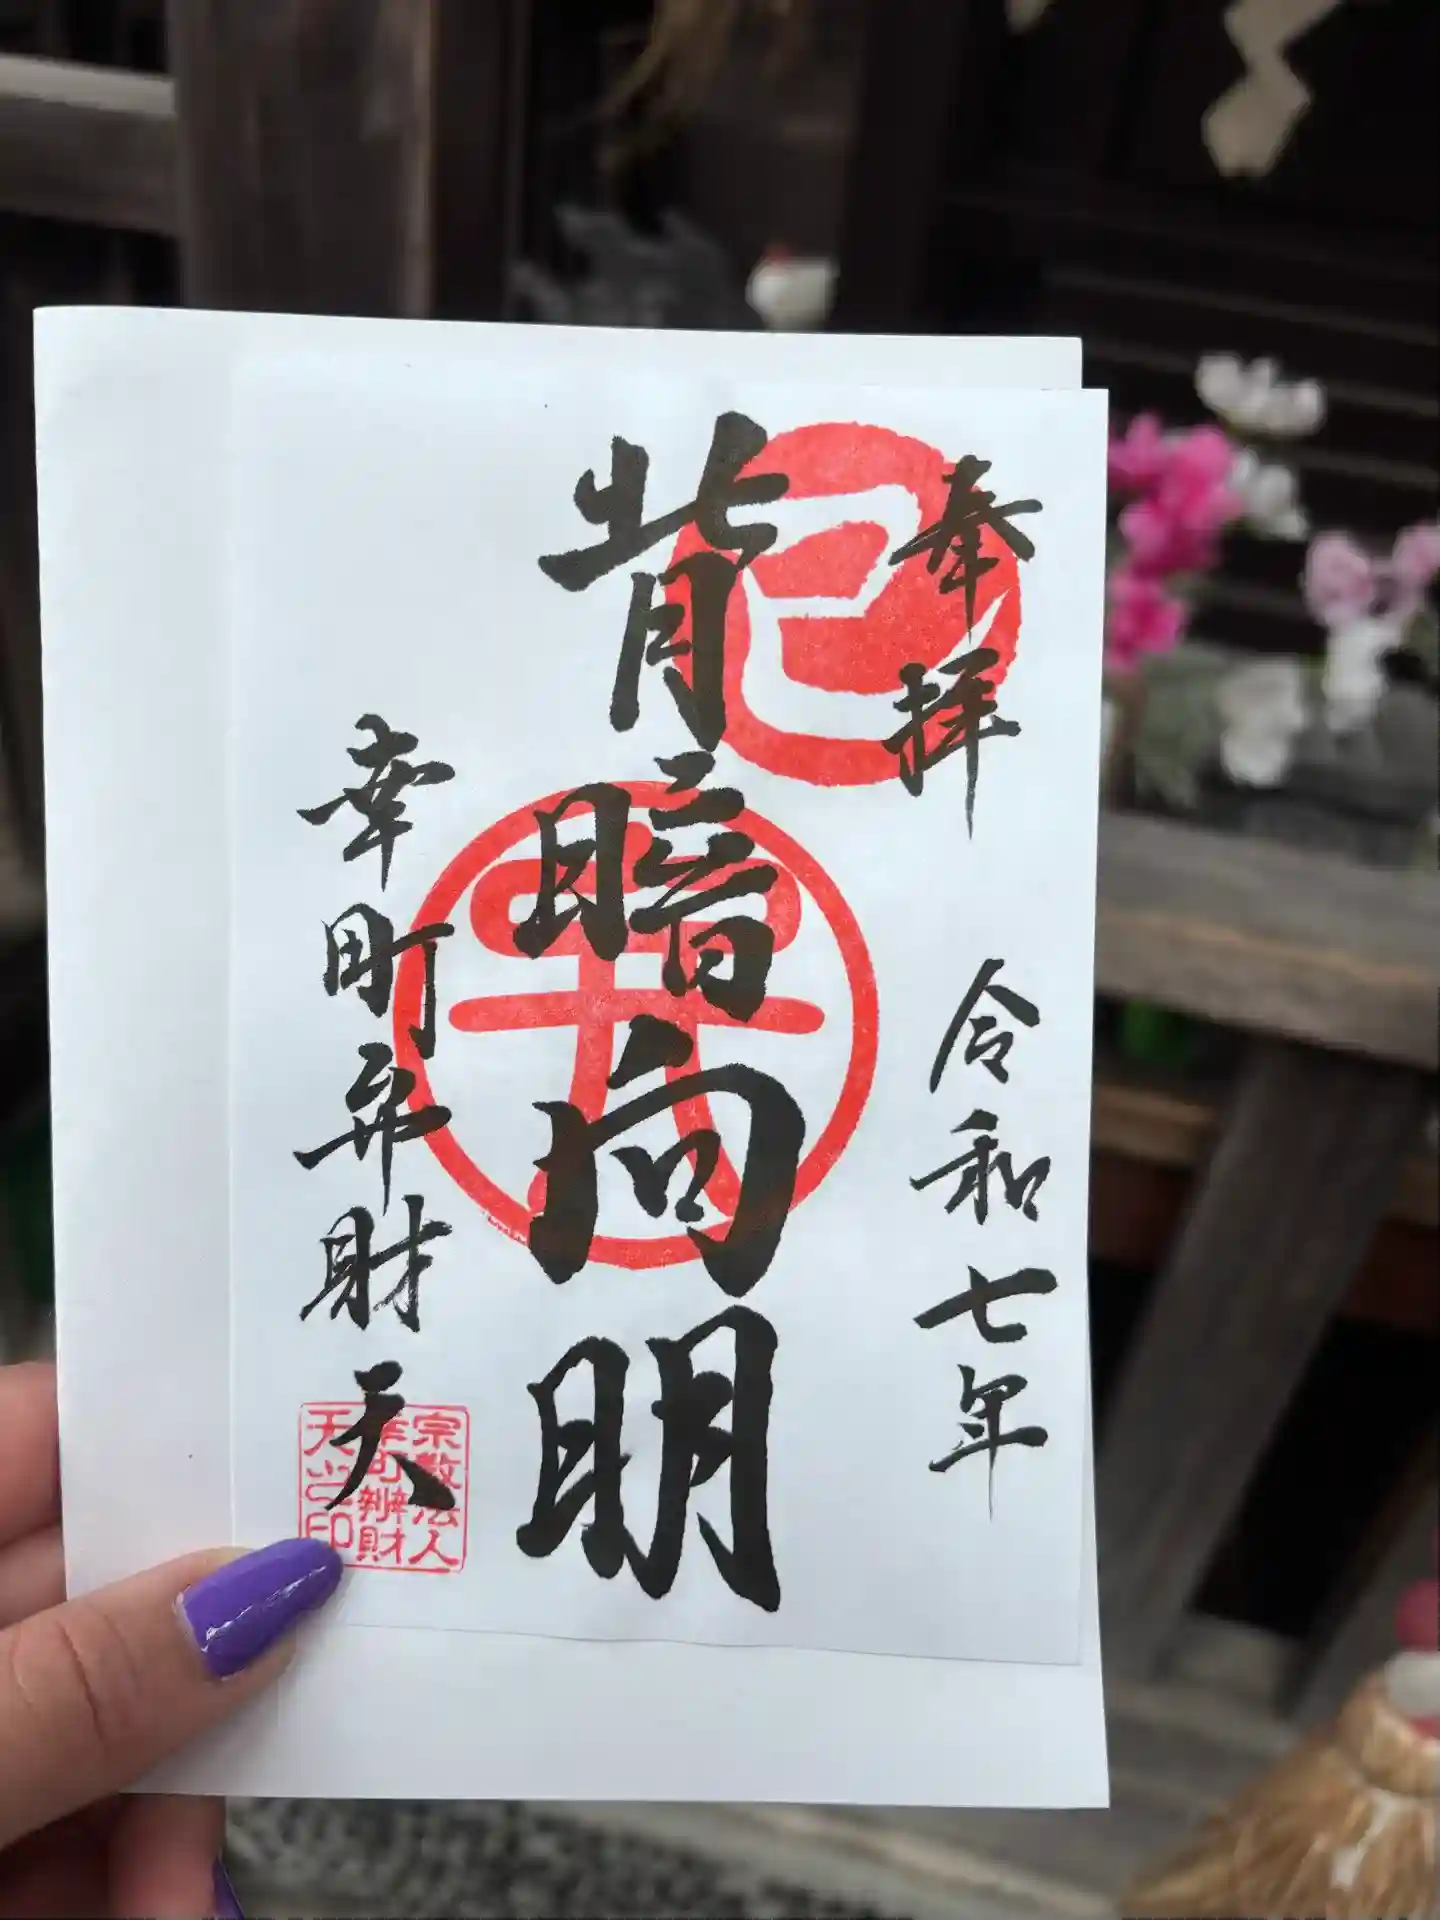 奉拝
令和七年
巳
背暗向明
幸町弁財天
宗教法人
幸町辨財
天之印